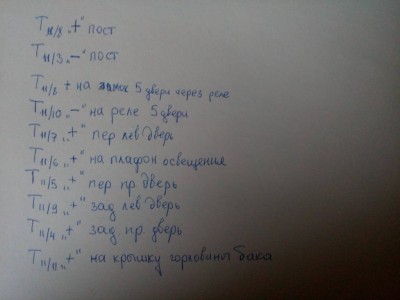 Т 11/8 „+“ пост
Т 11/3 „–“ пост
Т 11/2 + на замок 5 двери через реле
Т 11/10 „–“ на реле 5 двери
Т 11/7 „+“ пер лев дверь
Т 11/6 „+“ на плафон освещения
Т 11/5 „+“ пер пр дверь
Т 11/9 „+“ зад лев дверь
Т 11/4 „+“ зад пр дверь
Т 11/11 „+“ на крышку горловины бака